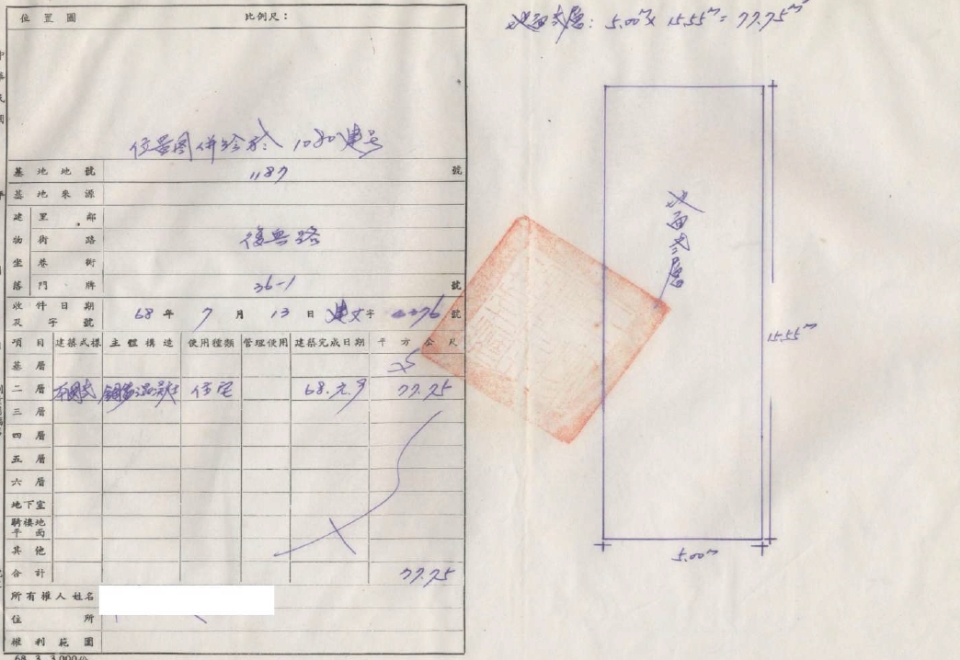 位置圖 比例尺：
位置图併绘於 1080建号
基地地號 1187 號
基地來源
建 里鄰
物 街路 復興路
坐 巷衖
落 門牌 36-1 號
收件日期 68年 7月 13日
及字號 建文字 號
項目 建築式樣 主體構造 使用種類 管理使用 建築完成日期 平方公尺
基層
二層 本國式 住宅 68.元.9 77.75
三層
四層
五層
六層
地下室
騎樓地平面
其他
合計 77.75
所有權人姓名
住所
權利範圍
68. 3. 3,000份
地面弍層: 5.00m x 15.55m = 77.75m
地面弍層
15.55m
5.00m